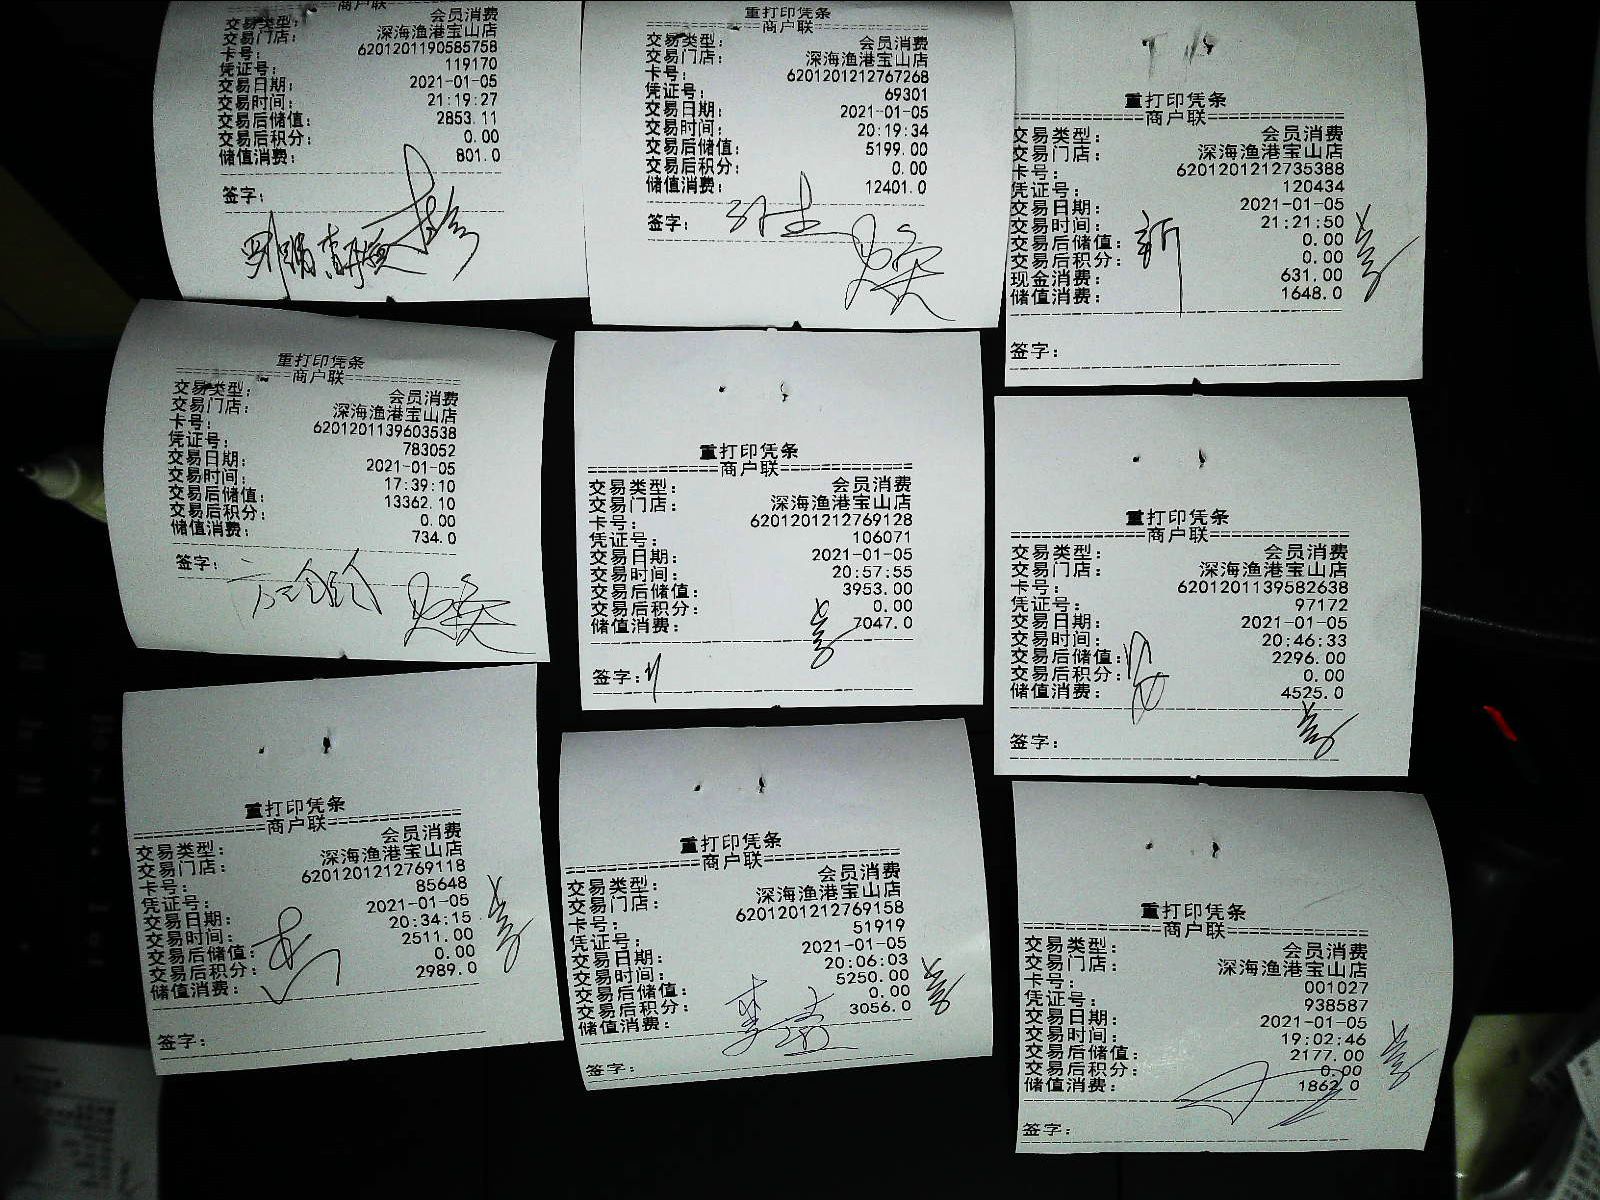 商户联
交易类型: 会员消费
交易门店: 深海渔港宝山店
卡号: 6201201190585758
凭证号: 119170
交易日期: 2021-01-05
交易时间: 21:19:27
交易后储值: 2853.11
交易后积分: 0.00
储值消费: 801.0
签字:
重打印凭条
商户联
交易类型: 会员消费
交易门店: 深海渔港宝山店
卡号: 6201201212767268
凭证号: 69301
交易日期: 2021-01-05
交易时间: 20:19:34
交易后储值: 5199.00
交易后积分: 0.00
储值消费: 12401.0
签字:
重打印凭条
商户联
交易类型: 会员消费
交易门店: 深海渔港宝山店
卡号: 6201201212735388
凭证号: 120434
交易日期: 2021-01-05
交易时间: 21:21:50
交易后储值: 0.00
交易后积分: 0.00
现金消费: 631.00
储值消费: 1648.0
签字:
重打印凭条
商户联
交易类型: 会员消费
交易门店: 深海渔港宝山店
卡号: 6201201139603538
凭证号: 783052
交易日期: 2021-01-05
交易时间: 17:39:10
交易后储值: 13362.10
交易后积分: 0.00
储值消费: 734.0
签字:
重打印凭条
商户联
交易类型: 会员消费
交易门店: 深海渔港宝山店
卡号: 6201201212769128
凭证号: 106071
交易日期: 2021-01-05
交易时间: 20:57:55
交易后储值: 3953.00
交易后积分: 0.00
储值消费: 7047.0
签字:
重打印凭条
商户联
交易类型: 会员消费
交易门店: 深海渔港宝山店
卡号: 6201201139582638
凭证号: 97172
交易日期: 2021-01-05
交易时间: 20:46:33
交易后储值: 2296.00
交易后积分: 0.00
储值消费: 4525.0
签字:
重打印凭条
商户联
交易类型: 会员消费
交易门店: 深海渔港宝山店
卡号: 6201201212769118
凭证号: 85648
交易日期: 2021-01-05
交易时间: 20:34:15
交易后储值: 2511.00
交易后积分: 0.00
储值消费: 2989.0
签字:
重打印凭条
商户联
交易类型: 会员消费
交易门店: 深海渔港宝山店
卡号: 6201201212769158
凭证号: 51919
交易日期: 2021-01-05
交易时间: 20:06:03
交易后储值: 5250.00
交易后积分: 0.00
储值消费: 3056.0
签字:
重打印凭条
商户联
交易类型: 会员消费
交易门店: 深海渔港宝山店
卡号: 001027
凭证号: 938587
交易日期: 2021-01-05
交易时间: 19:02:46
交易后储值: 2177.00
交易后积分: 0.00
储值消费: 1862.0
签字: